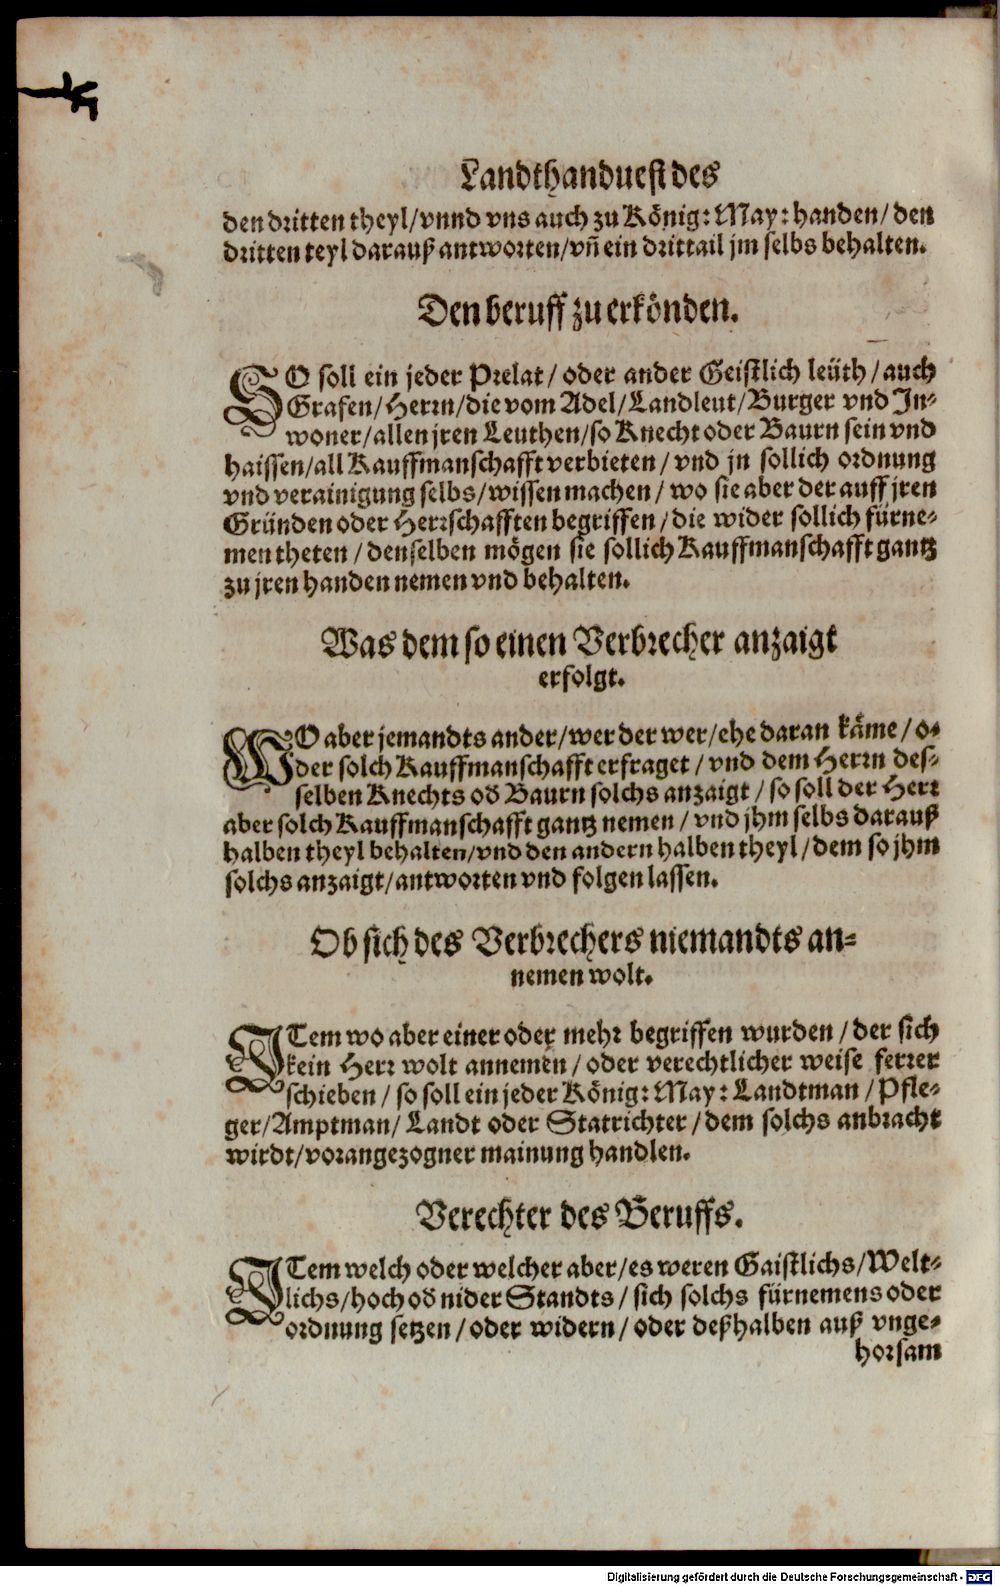 Landthanduest des
den dritten theyl/vnnd vns auch zu König: May: handen/den
dritten teyl darauß antworten/vn̄ ein drittail jm selbs behalten.
Den beruff zu erkönden.
SO soll ein jeder Prelat/oder ander Geistlich leüth/auch
Grafen/Herrn/die vom Adel/Landleut/Burger vnd In-
woner/allen jren Leuthen/so Knecht oder Baurn sein vnd
haissen/all Kauffmanschafft verbieten/vnd jn sollich ordnung
vnd verainigung selbs/wissen machen/wo sie aber der auff jren
Gründen oder Herrschafften begriffen/die wider sollich fürne-
men theten/denselben mögen sie sollich Kauffmanschafft gantz
zu jren handen nemen vnd behalten.
Was dem so einen Verbrecher anzaigt
erfolgt.
WO aber jemandts ander/wer der wer/ehe daran käme/o-
der solch Kauffmanschafft erfraget/vnd dem Herrn des-
selben Knechts od Baurn solchs anzaigt/so soll der Herr
aber solch Kauffmanschafft gantz nemen/vnd jhm selbs darauß
halben theyl behalten/vnd den andern halben theyl/dem so jhm
solchs anzaigt/antworten vnd folgen lassen.
Ob sich des Verbrechers niemandts an-
nemen wolt.
ITem wo aber einer oder mehr begriffen wurden/der sich
kein Herr wolt annemen/oder verechtlicher weise ferrer
schieben/so soll ein jeder König: May: Landtman/Pfle-
ger/Amptman/Landt oder Statrichter/dem solchs anbracht
wirdt/vorangezogner mainung handlen.
Verechter des Beruffs.
ITem welch oder welcher aber/es weren Gaistlichs/Welt-
lichs/hoch od nider Standts/sich solchs fürnemens oder
ordnung setzen/oder widern/oder deßhalben auß vnge-
horsam
Digitalisierung gefördert durch die Deutsche Forschungsgemeinschaft - DFG